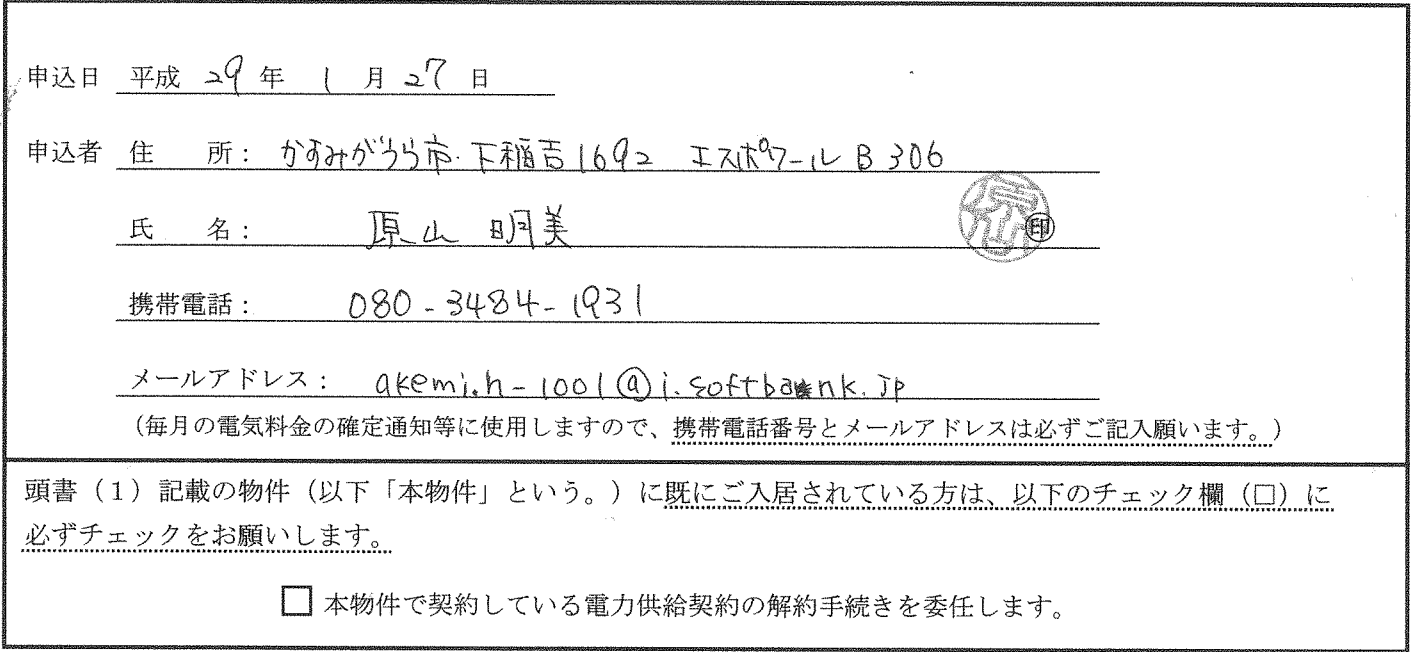 申込日 平成 29 年 1 月 27 日
申込者 住 所: かすみがうら市.下稲吉1692 エスポワールB 306
氏 名: 原山 明美 ㊞
携帯電話: 080-3484-1931
メールアドレス: akemi.h-1001@i.softbank.jp
(毎月の電気料金の確定通知等に使用しますので、携帯電話番号とメールアドレスは必ずご記入願います。)
頭書(1)記載の物件(以下「本物件」という。)に既にご入居されている方は、以下のチェック欄(□)に
必ずチェックをお願いします。
□ 本物件で契約している電力供給契約の解約手続きを委任します。